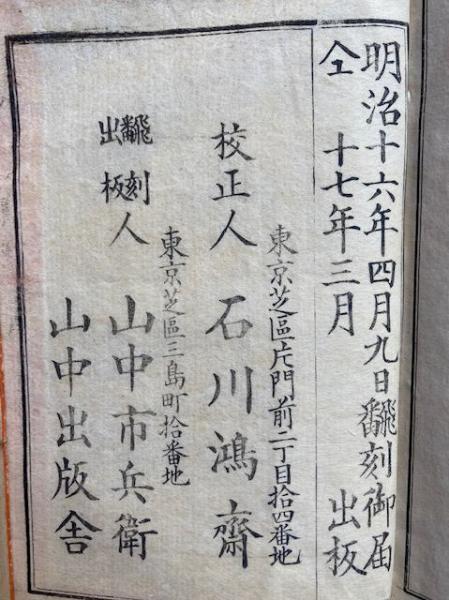 明治十六年四月九日飜刻御届
仝　十七年三月　出板
東京芝區片門前二丁目拾四番地
校正人　石川鴻齋
東京芝區三島町拾番地
飜刻出板人　山中市兵衛
山中出版舎